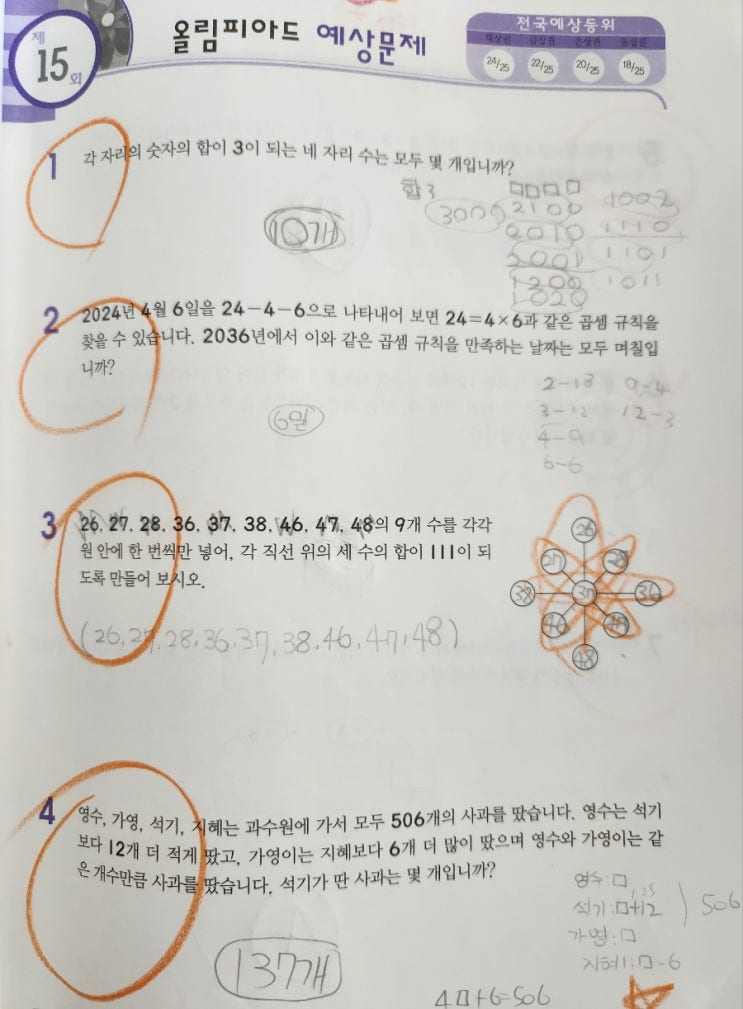 제
15회
올림피아드 예상문제
전국예상등위
대상권 금상권 은상권 동상권
24/25 22/25 20/25 18/25
1 각 자리의 숫자의 합이 3이 되는 네 자리 수는 모두 몇 개입니까?
합 3 □□□□
3000 2100 1002
10개 2010 1110
2001 1101
1200 1011
1020
2 2024년 4월 6일을 24-4-6으로 나타내어 보면 24=4×6과 같은 곱셈 규칙을
찾을 수 있습니다. 2036년에서 이와 같은 곱셈 규칙을 만족하는 날짜는 모두 며칠입
니까?
2-18 9-4
6일 3-12 12-3
4-9
6-6
3 26, 27, 28, 36, 37, 38, 46, 47, 48의 9개 수를 각각
원 안에 한 번씩만 넣어, 각 직선 위의 세 수의 합이 111이 되
도록 만들어 보시오.
26
27 28
38 37 36
46 47
48
(26, 27, 28, 36, 37, 38, 46, 47, 48)
4 영수, 가영, 석기, 지혜는 과수원에 가서 모두 506개의 사과를 땄습니다. 영수는 석기
보다 12개 더 적게 땄고, 가영이는 지혜보다 6개 더 많이 땄으며 영수와 가영이는 같
은 개수만큼 사과를 땄습니다. 석기가 딴 사과는 몇 개입니까?
영수:□
석기:□+12 ) 506
가영:□
지혜:□-6
137개
4□+6=506